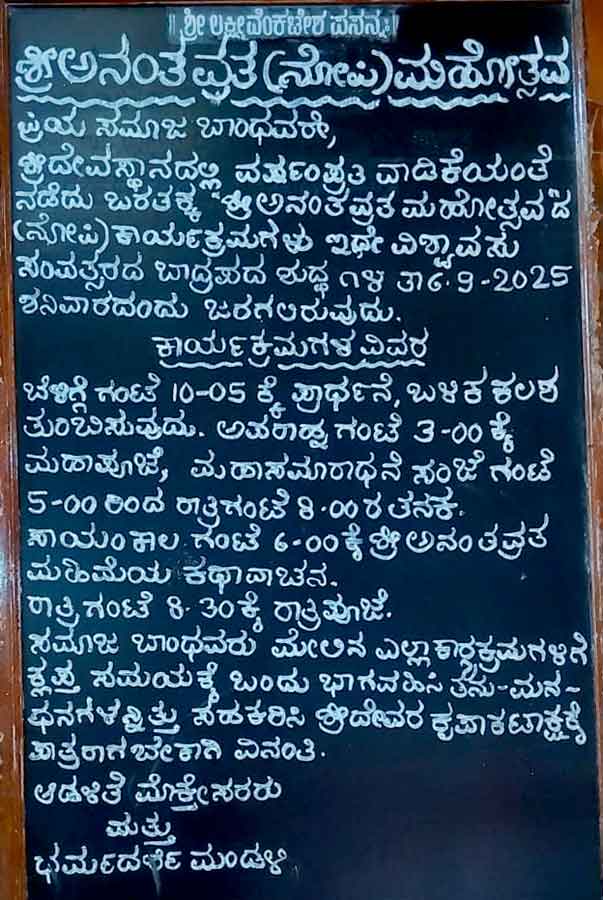 || ಶ್ರೀ ಲಕ್ಷ್ಮೀವೆಂಕಟೇಶ ಪ್ರಸನ್ನಃ ||
ಶ್ರೀ ಅನಂತ ವ್ರತ (ನೋಪಿ) ಮಹೋತ್ಸವ
ಪ್ರಿಯ ಸಮಾಜ ಬಾಂಧವರೇ,
ಶ್ರೀದೇವಸ್ಥಾನದಲ್ಲಿ ವರ್ಷಂಪ್ರತಿ ವಾಡಿಕೆಯಂತೆ
ನಡೆದು ಬರತಕ್ಕ "ಶ್ರೀ ಅನಂತವ್ರತ ಮಹೋತ್ಸವ"ದ
(ನೋಪಿ) ಕಾರ್ಯಕ್ರಮಗಳು ಇದೇ ವಿಶ್ವಾವಸು
ಸಂವತ್ಸರದ ಬಾದ್ರಪದ ಶುದ್ಧ ೧೪ ತಾ 6-9-2025
ಶನಿವಾರದಂದು ಜರಗಲಿರುವುದು.
ಕಾರ್ಯಕ್ರಮಗಳ ವಿವರ
ಬೆಳಿಗ್ಗೆ ಗಂಟೆ 10-05 ಕ್ಕೆ ಪ್ರಾರ್ಥನೆ, ಬಳಿಕ ಕಲಶ
ತುಂಬಿಸುವುದು. ಅಪರಾಹ್ನ ಗಂಟೆ 3-00 ಕ್ಕೆ
ಮಹಾಪೂಜೆ, ಮಹಾಸಮಾರಾಧನೆ ಸಂಜೆ ಗಂಟೆ
5-00 ರಿಂದ ರಾತ್ರಿ ಗಂಟೆ 8-00 ರ ತನಕ.
ಸಾಯಂಕಾಲ ಗಂಟೆ 6-00 ಕ್ಕೆ ಶ್ರೀ ಅನಂತವ್ರತ
ಮಹಿಮೆಯ ಕಥಾವಾಚನ.
ರಾತ್ರಿ ಗಂಟೆ 8-30 ಕ್ಕೆ ರಾತ್ರಿಪೂಜೆ.
ಸಮಾಜ ಬಾಂಧವರು ಮೇಲಿನ ಎಲ್ಲಾ ಕಾರ್ಯಕ್ರಮಗಳಿಗೆ
ಕ್ಲಪ್ತ ಸಮಯಕ್ಕೆ ಬಂದು ಭಾಗವಹಿಸಿ ತನು-ಮನ-
ಧನಗಳನ್ನಿತ್ತು ಸಹಕರಿಸಿ ಶ್ರೀದೇವರ ಕೃಪಾಕಟಾಕ್ಷಕ್ಕೆ
ಪಾತ್ರರಾಗಬೇಕಾಗಿ ವಿನಂತಿ.
ಆಡಳಿತೆ ಮೊಕ್ತೇಸರರು
ಮತ್ತು
ಮಂಡಳಿ